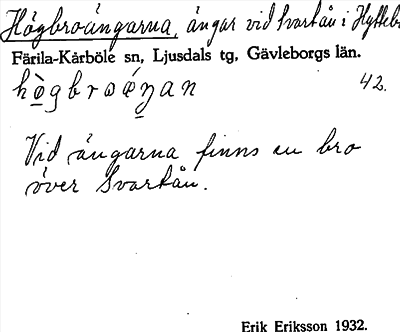 Högbroängarna, ängar vid Svartån i
Färila-Kårböle sn, Ljusdals tg, Gävleborgs län.
42.
Vid ängarna finns en bro
över Svartån.
Erik Eriksson 1932.